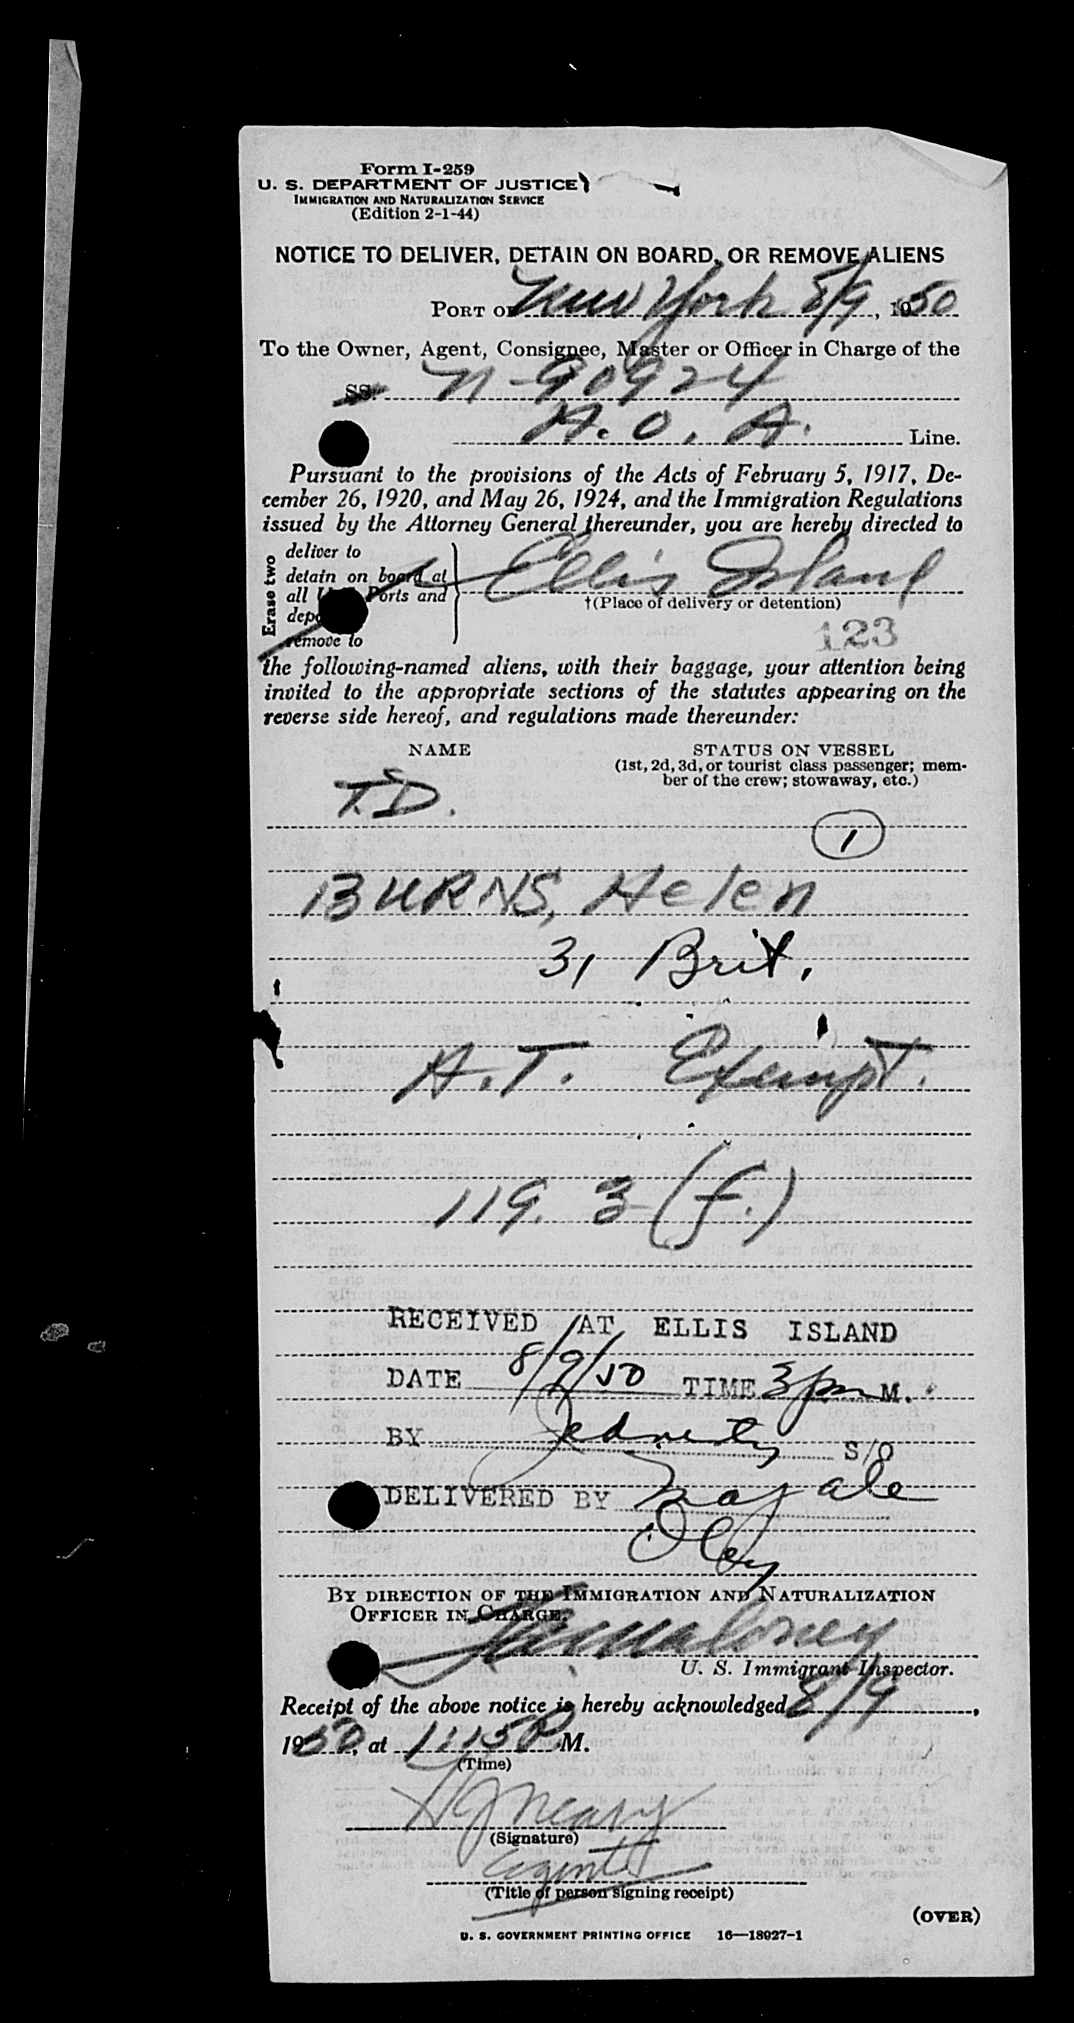 Form I-259
U. S. DEPARTMENT OF JUSTICE
IMMIGRATION AND NATURALIZATION SERVICE
(Edition 2-1-44)
NOTICE TO DELIVER, DETAIN ON BOARD, OR REMOVE ALIENS
PORT OF New York 8/9, 1950
To the Owner, Agent, Consignee, Master or Officer in Charge of the
SS N-90924
A. O. A. Line.
Pursuant to the provisions of the Acts of February 5, 1917, De-
cember 26, 1920, and May 26, 1924, and the Immigration Regulations
issued by the Attorney General thereunder, you are hereby directed to
Erase two
deliver to
detain on board at
all Ports and
remove to
Ellis Island
†(Place of delivery or detention)
123
the following-named aliens, with their baggage, your attention being
invited to the appropriate sections of the statutes appearing on the
reverse side hereof, and regulations made thereunder:
NAME STATUS ON VESSEL
(1st, 2d, 3d, or tourist class passenger; mem-
ber of the crew; stowaway, etc.)
T.D.
1
BURNS, Helen
31 Brit.
A.T. Exempt.
119. 3 (f.)
RECEIVED AT ELLIS ISLAND
DATE 8/9/50 TIME 3 pm M.
BY S/O
DELIVERED BY
BY DIRECTION OF THE IMMIGRATION AND NATURALIZATION
OFFICER IN CHARGE.
U. S. Immigrant Inspector.
Receipt of the above notice is hereby acknowledged 8/9,
1950, at 1:15 P.M.
(Time)
(Signature)
(Title of person signing receipt)
(OVER)
U. S. GOVERNMENT PRINTING OFFICE 16—18027-1